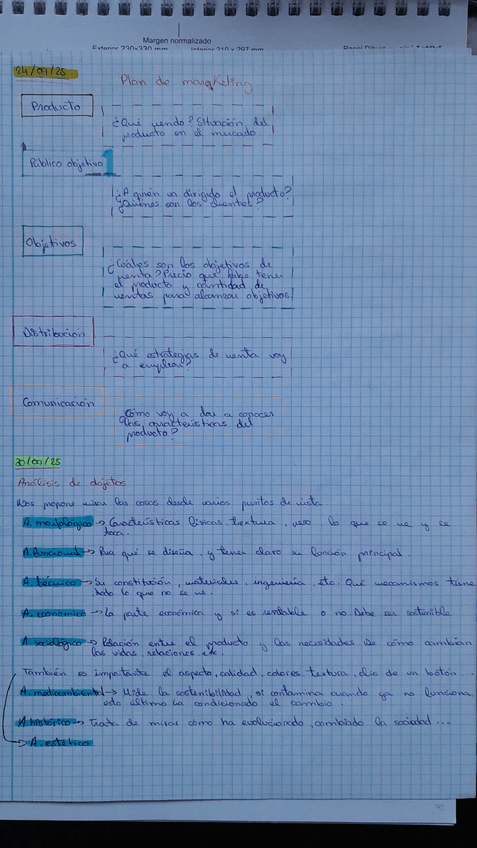 Margen normalizado
Exterior 230x330 mm
24/09/25
Plan de marqketing
Producto
¿Qué vendo? Situación del
producto en el mercado.
Público objetivo
¿A quién va dirigido el producto?
¿Quiénes son los clientes?
Objetivos
¿Cuáles son los objetivos de
venta? Precio que debe tener
el producto y cantidad de
ventas para alcanzar objetivos
Distribución
¿Qué estrategias de venta voy
a emplear?
Comunicación
¿Cómo voy a dar a conocer
las características del
producto?
30/09/25
Análisis de objetos
Nos propone mirar las cosas desde varios puntos de vista
A. morfológico → Características físicas, textura, peso lo que se ve y se
toca.
A. funcional → Para qué se diseña, y tener claro su función principal.
A. técnico → Su constitución, materiales, ingeniería, etc. Qué mecanismos tiene
todo lo que no se ve.
A. económico → La parte económica y si es rentable o no Debe ser sostenible
A. sociológico → Relación entre el producto y las necesidades. De cómo cambian
las vidas, relaciones, etc
También es importante el aspecto, calidad, colores textura, clic de un botón...
A. medioambiental → Mide la sostenibilidad, si contamina cuando ya no funciona,
esto último ha condicionado el cambio.
A. histórico → Trata de mirar cómo ha evolucionado, cambiado la sociedad...
A. estético